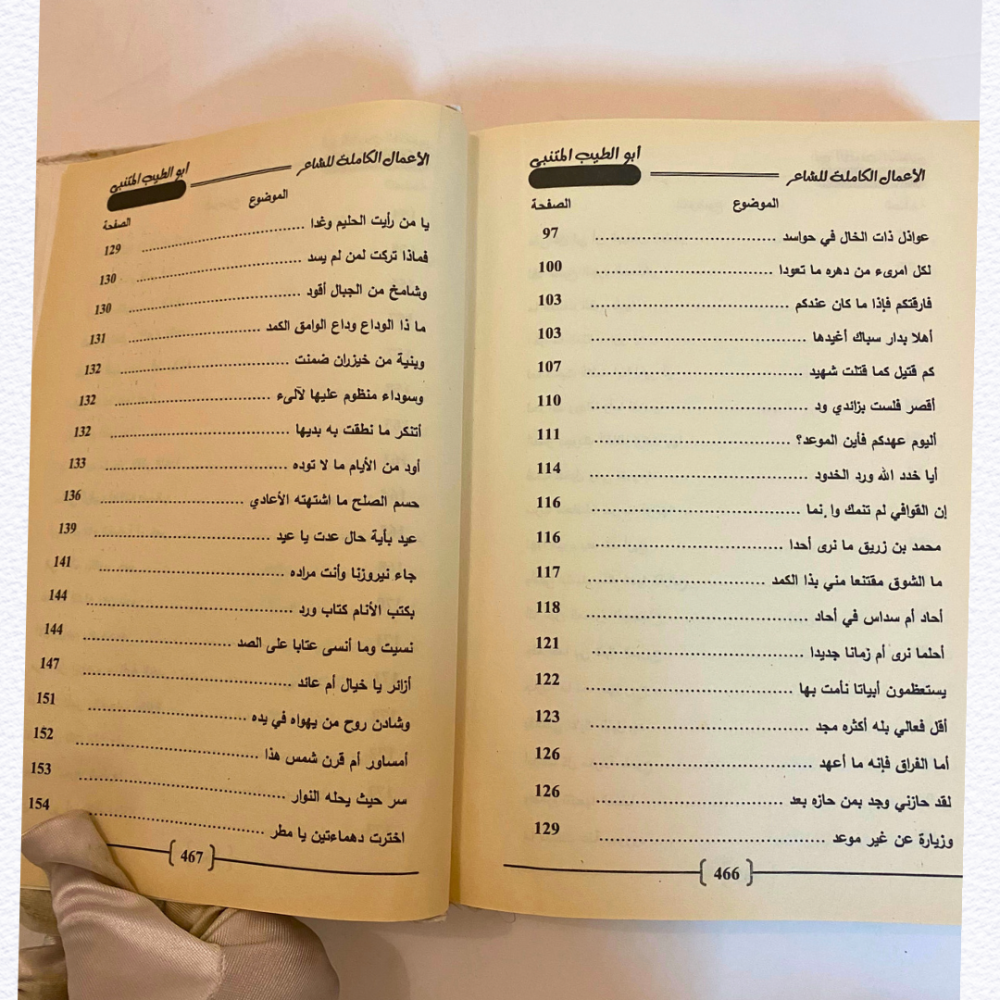 الأعمال الكاملة للشاعر أبو الطيب المتنبي
الموضوع الصفحة
عواذل ذات الخال في حواسد ........ 97
لكل امرىء من دهره ما تعودا ........ 100
فارقتكم فإذا ما كان عندكم ........ 103
أهلا بدار سباك أغيدها ........ 103
كم قتيل كما قتلت شهيد ........ 107
أقصر فلست بزائدي ود ........ 110
أليوم عهدكم فأين الموعد؟ ........ 111
أيا خدد الله ورد الخدود ........ 114
إن القوافي لم تنمك وإنما ........ 116
محمد بن زريق ما نرى أحدا ........ 116
ما الشوق مقتنعا مني بذا الكمد ........ 117
أحاد أم سداس في أحاد ........ 118
أحلما نرى أم زمانا جديدا ........ 121
يستعظمون أبياتا نأمت بها ........ 122
أقل فعالي بله أكثره مجد ........ 123
أما الفراق فإنه ما أعهد ........ 126
لقد حازني وجد بمن حازه بعد ........ 126
وزيارة عن غير موعد ........ 129
466
الأعمال الكاملة للشاعر أبو الطيب المتنبي
الموضوع الصفحة
يا من رأيت الحليم وغدا ........ 129
فماذا تركت لمن لم يسد ........ 130
وشامخ من الجبال أقود ........ 130
ما ذا الوداع وداع الوامق الكمد ........ 131
وبنية من خيزران ضمنت ........ 132
وسوداء منظوم عليها لآلىء ........ 132
أتنكر ما نطقت به بديها ........ 132
أود من الأيام ما لا توده ........ 133
حسم الصلح ما اشتهته الأعادي ........ 136
عيد بأية حال عدت يا عيد ........ 139
جاء نيروزنا وأنت مراده ........ 141
بكتب الأنام كتاب ورد ........ 144
نسيت وما أنسى عتابا على الصد ........ 144
أزائر يا خيال أم عائد ........ 147
وشادن روح من يهواه في يده ........ 151
أمساور أم قرن شمس هذا ........ 152
سر حيث يحله النوار ........ 153
اخترت دهماءتين يا مطر ........ 154
467